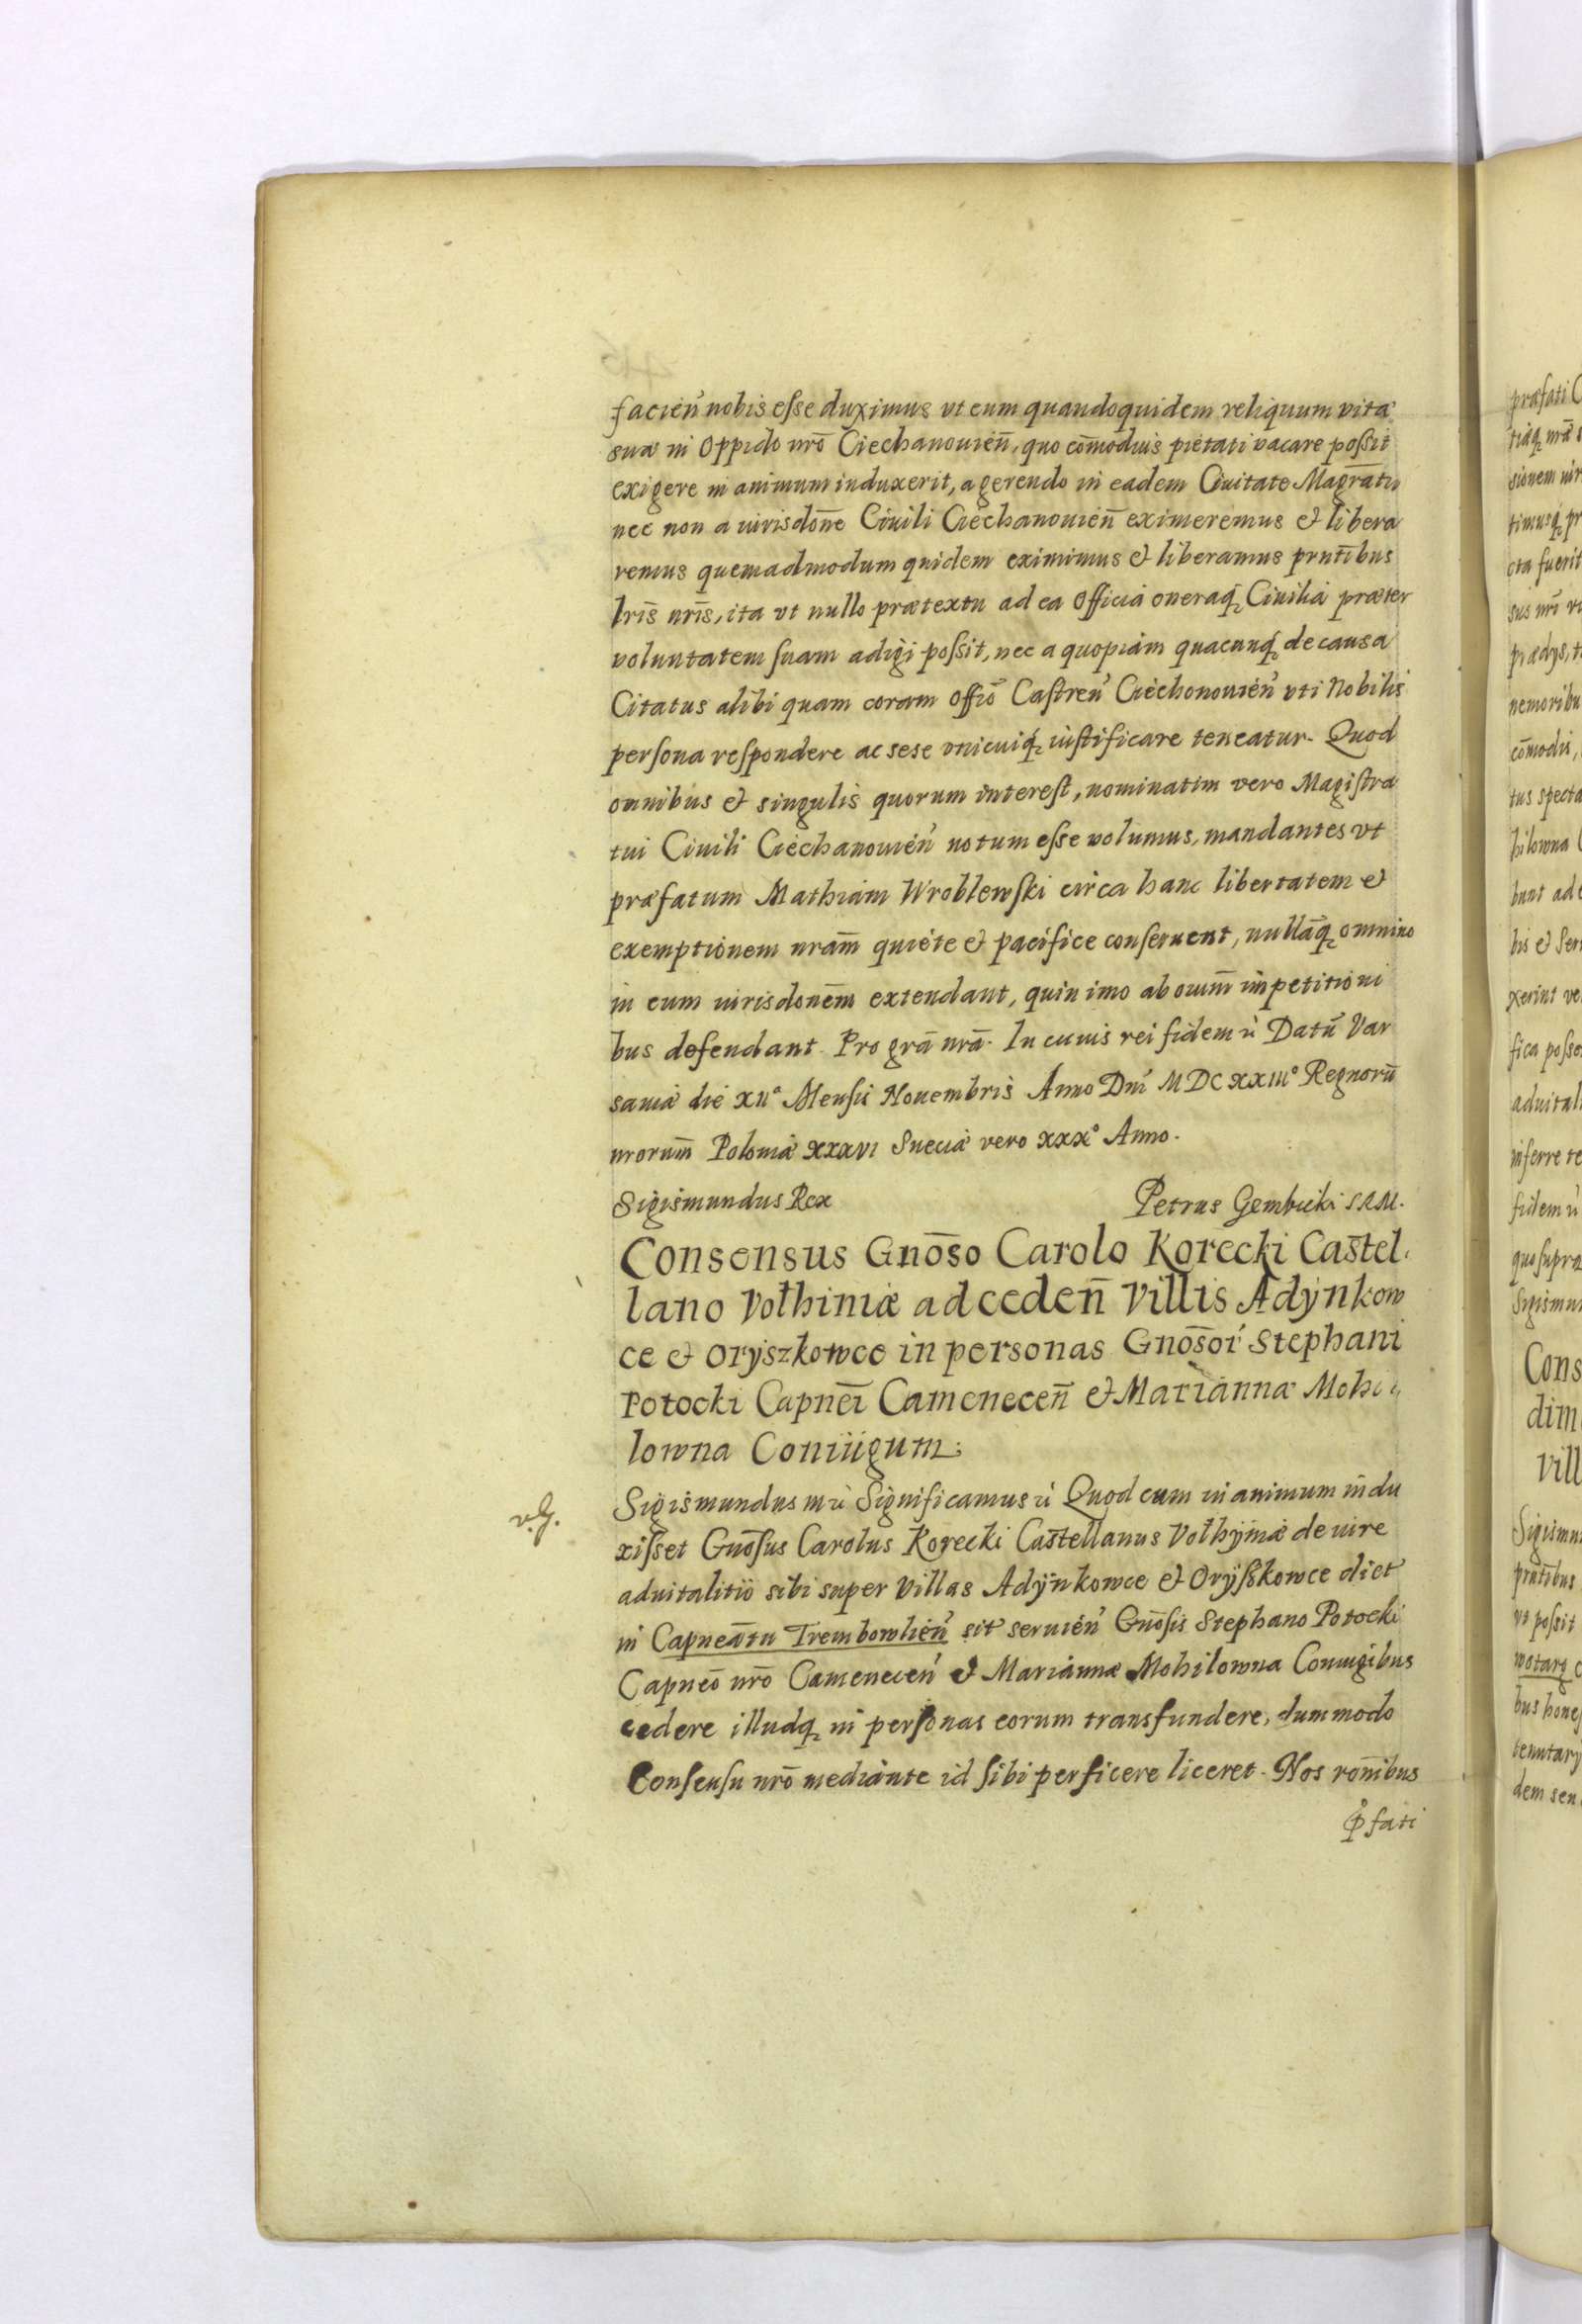 facień nobis esse duximus vt eum quandoquidem reliquum vitæ
suæ in Oppido nrō Ciechanouień, quo cōmodius pietati vacare possit
exigere in animum induxerit, a gerendo in eadem Ciuitate Magrātu
nec non a iurisdōne Ciuili Ciechanouień eximeremus & libera
remus quemadmodum quidem eximimus & liberamus prntībus
lrīs nrīs, ita vt nullo prætextu ad ea Officia oneraq; Ciuilia præter
voluntatem suam adigi possit, nec a quopiam quacunq; de causa
Citatus alibi quam coram Offīo Castreń Ciechonouień vti Nobilis
persona respondere ac sese vnicuiq; iustificare teneatur. Quod
omnibus & singulis quorum interest, nominatim vero Magistra
tui Ciuili Ciechanouień notum esse volumus, mandantes vt
præfatum Mathiam Wroblewski circa hanc libertatem &
exemptionem nram̄ quiete & pacifice conseruent, nullāq; omnino
in eum iurisdonēm extendant, quin imo ab oıuım̄ impetitioni
bus defendant. Pro grā nrā. In cuius rei fidem ıı Datū Var
sauiæ die XIIª Mensis Nouembris Anno Dnī MDCXXIIIº Regnorū
nrorum̄ Poloniæ XXXVI Sueciæ vero XXXº Anno.
Sigismundus Rex Petrus Gembicki SRM.
Consensus Gnōso Carolo Korecki Castel
lano Vołhiniæ ad cedeń Villis Adynkow
ce & Oryszkowce in personas Gnōsor Stephani
Potocki Capneī Cameneceń & Mariannæ Mohi
lowna Coniugum.
v.G.
Sigismundus ııı ıı Significamus ıı Quod cum in animum indu
xisset Gnōsus Carolus Korecki Castellanus Vołhyniæ de iure
aduitalitio sibi super Villas Adynkowce & Oryszkowce dict
in Capneātu Trembowlień sit seruień Gnōsis Stephano Potocki
Capneō nrō Cameneceń & Mariannæ Mohilowna Coniugibus
cedere illudq; in personas eorum transfundere, dummodo
Consensu nrō mediante id sibi perficere liceret. Nos ronībus
p̊fati